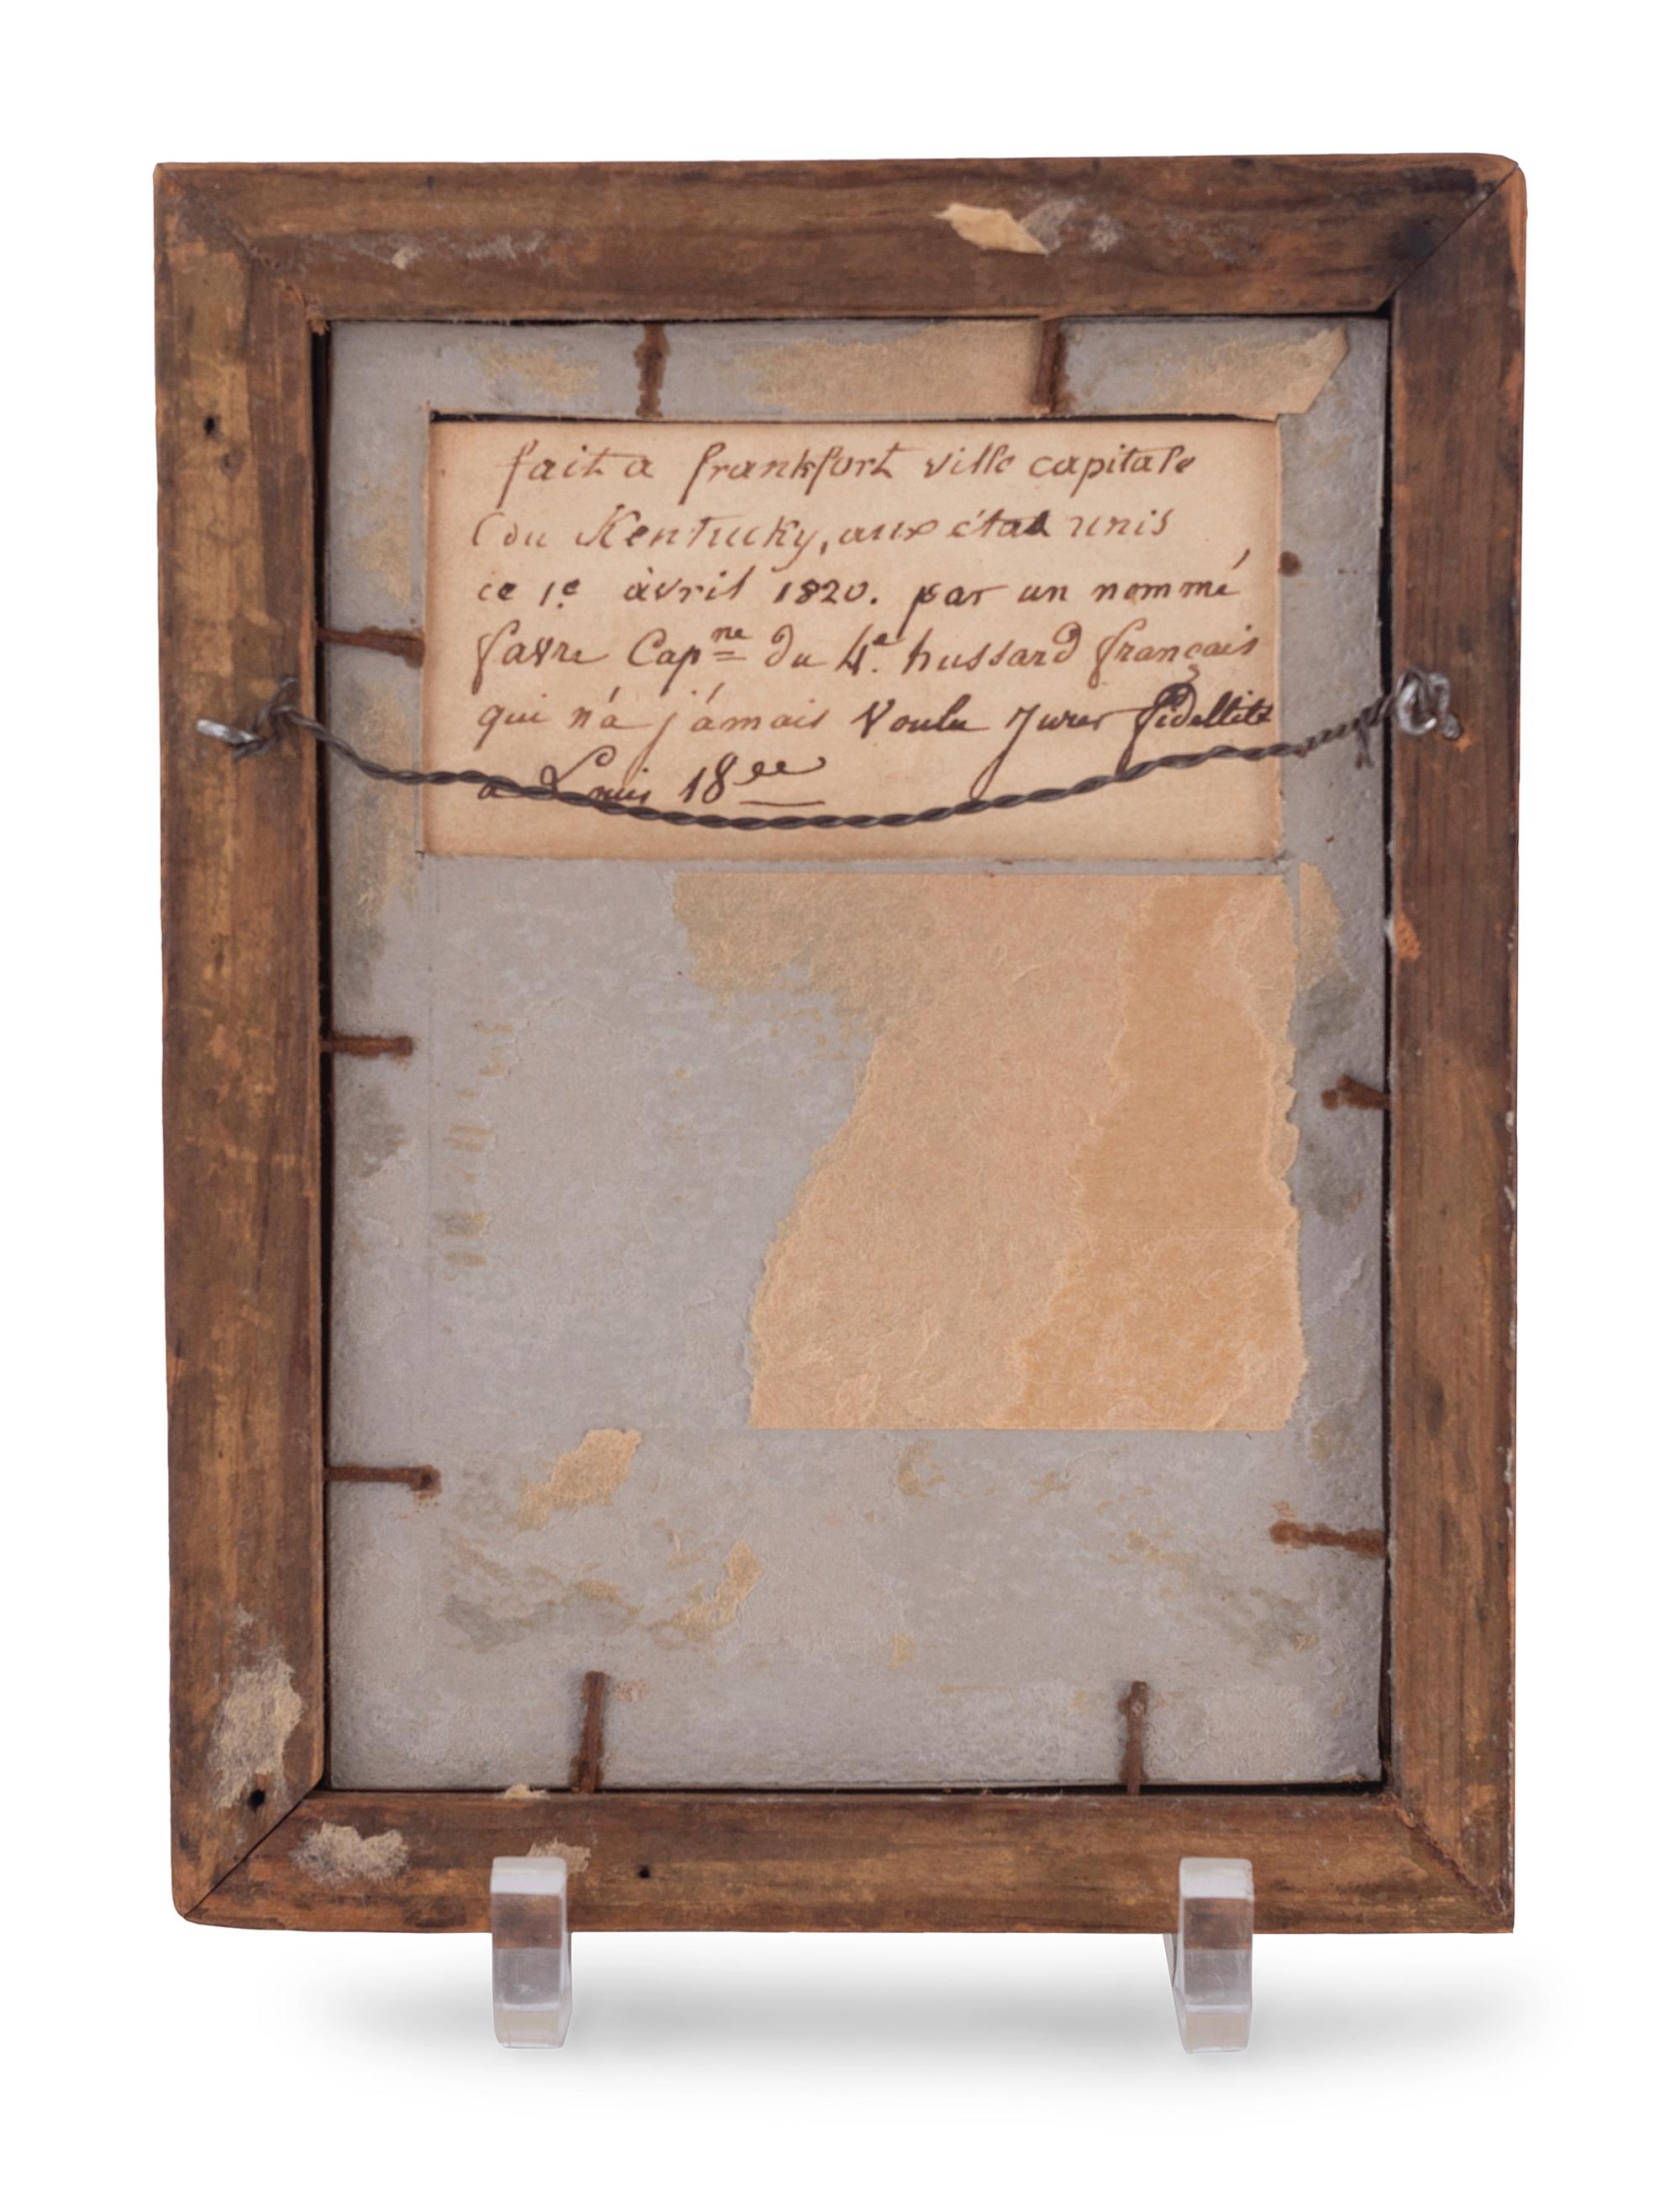 fait a frankfort ville capitale
du Kentucky, aux état unis
ce 1.e àvril 1820. par un nommé
favre Capne du 4.e hussard français
qui n'a j'amais Voulu Jurer fidellité
a Louis 18ee